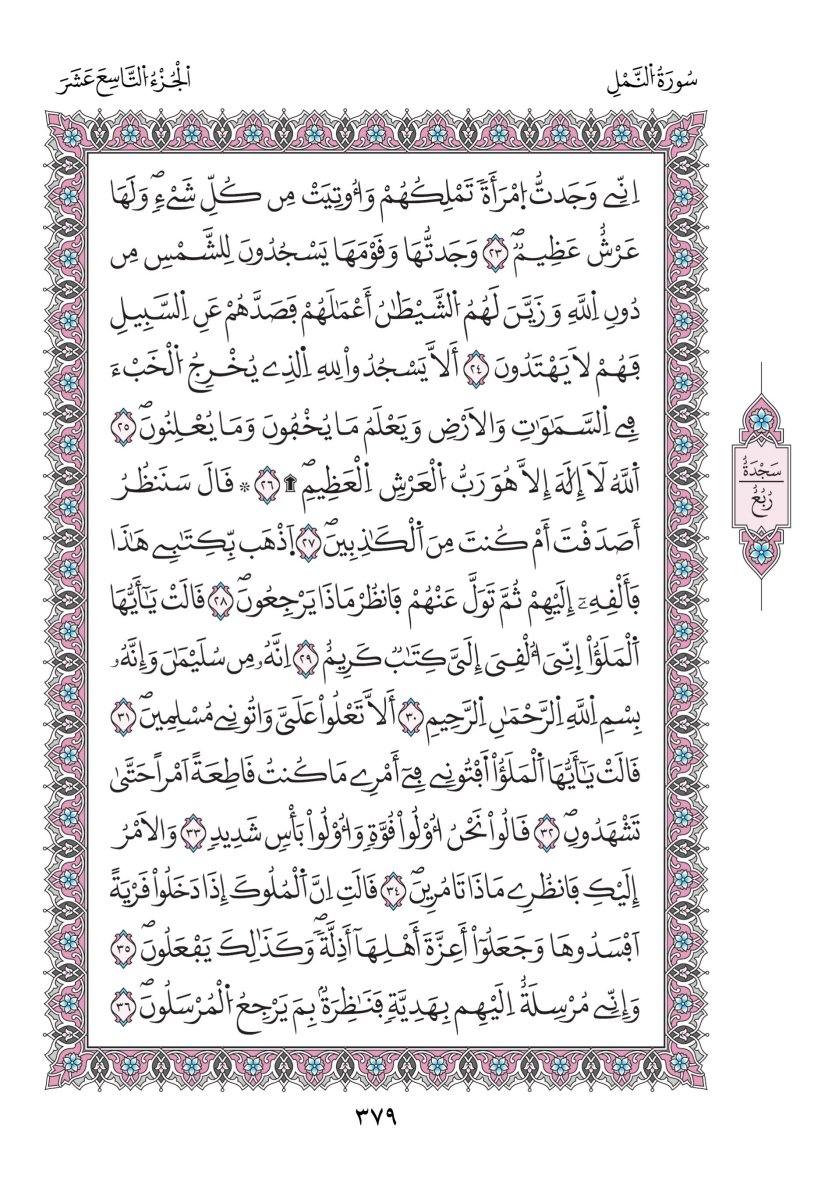 سُورَةُ اُلنَّمْلِ
اَلْجُزْءُ اُلتَّاسِعَ عَشَرَ
اِنِّے وَجَدتُّ اُمْرَأَةٗ تَمْلِكُهُمْ وَأُوتِيَتْ مِن كُلِّ شَےْءٖۖ وَلَهَا
عَرْشٌ عَظِيمٞۖ ٢٣ وَجَدتُّهَا وَقَوْمَهَا يَسْجُدُونَ لِلشَّمْسِ مِن
دُونِ اِ۬للَّهِ وَزَيَّنَ لَهُمُ اُ۬لشَّيْطَٰنُ أَعْمَٰلَهُمْ فَصَدَّهُمْ عَنِ اِ۬لسَّبِيلِ
فَهُمْ لَا يَهْتَدُونَ ٢٤ أَلَّا يَسْجُدُواْ لِلهِ اِ۬لذِے يُخْرِجُ اُ۬لْخَبْءَ
فِے اِ۬لسَّمَٰوَٰتِ وَالَارْضِ وَيَعْلَمُ مَا يُخْفُونَ وَمَا يُعْلِنُونَۖ ٢٥
اَ۬للَّهُ لَآ إِلَٰهَ إِلَّا هُوَ رَبُّ اُ۬لْعَرْشِ اِ۬لْعَظِيمِۖ ۩ ٢٦ * قَالَ سَنَنظُرُ
أَصَدَقْتَ أَمْ كُنتَ مِنَ اَ۬لْكَٰذِبِينَۖ ٢٧ اَ۪ذْهَب بِّكِتَٰبِے هَٰذَا
فَأَلْقِهِۦٓ إِلَيْهِمْ ثُمَّ تَوَلَّ عَنْهُمْ فَانظُرْ مَاذَا يَرْجِعُونَۖ ٢٨ قَالَتْ يَٰٓأَيُّهَا
اَ۬لْمَلَؤُاْ اِ۪نِّيَ أُلْقِيَ إِلَيَّ كِتَٰبٞ كَرِيمٌ ٢٩ اِنَّهُۥ مِن سُلَيْمَٰنَ وَإِنَّهُۥ
بِسْمِ اِ۬للَّهِ اِ۬لرَّحْمَٰنِ اِ۬لرَّحِيمِ ٣٠ أَلَّا تَعْلُواْ عَلَيَّ وَاتُونِے مُسْلِمِينَۖ ٣١
قَالَتْ يَٰٓأَيُّهَا اَ۬لْمَلَؤُاْ اَ۬فْتُونِے فِےٓ أَمْرِے مَا كُنتُ قَاطِعَةً اَمْراً حَتَّىٰ
تَشْهَدُونِۖ ٣٢ قَالُواْ نَحْنُ أُوْلُواْ قُوَّةٖ وَأُوْلُواْ بَأْسٖ شَدِيدٖ ٣٣ وَالَامْرُ
إِلَيْكِ فَانظُرِے مَاذَا تَامُرِينَۖ ٣٤ قَالَتِ اِنَّ اَ۬لْمُلُوكَ إِذَا دَخَلُواْ قَرْيَةً
اَفْسَدُوهَا وَجَعَلُوٓاْ أَعِزَّةَ أَهْلِهَآ أَذِلَّةٗۖ وَكَذَٰلِكَ يَفْعَلُونَۖ ٣٥
وَإِنِّے مُرْسِلَةٌ اِلَيْهِم بِهَدِيَّةٖ فَنَاظِرَةُۢ بِمَ يَرْجِعُ اُ۬لْمُرْسَلُونَۖ ٣٦
سَجْدَةٌ
رُبُعُ
٣٧٩